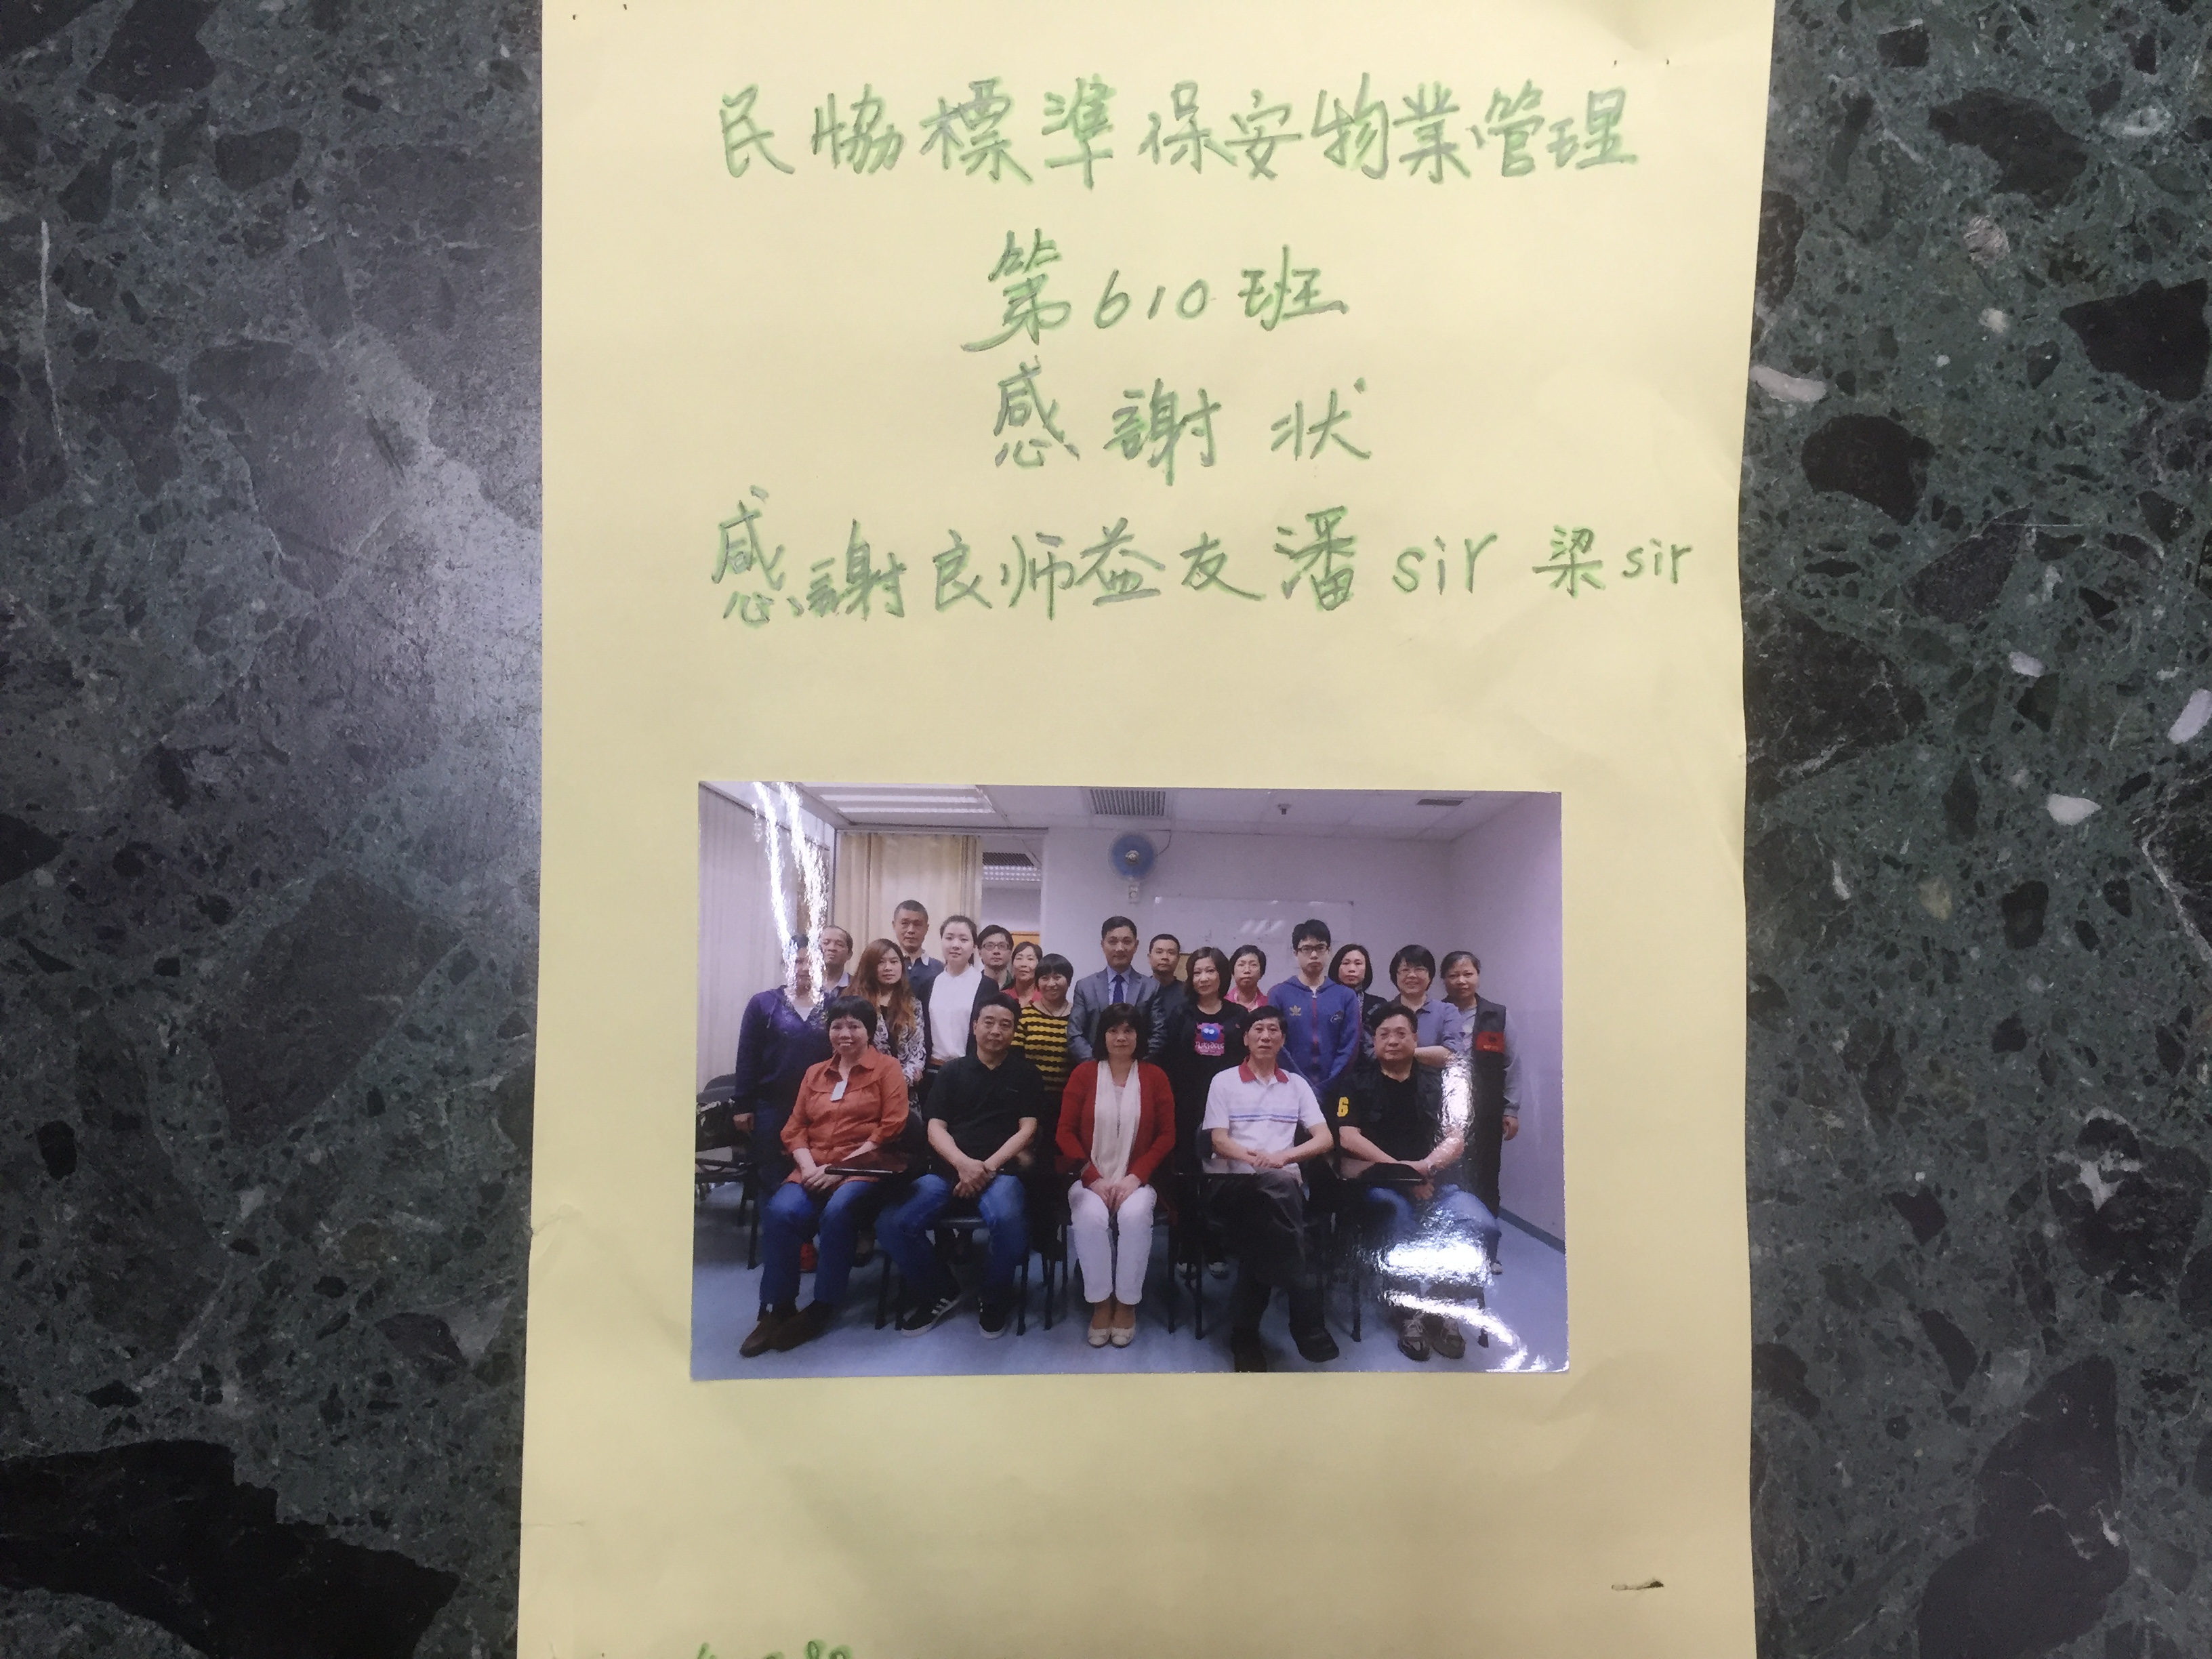 民協標準保安物業管理
第610班
感謝状
感謝良师益友潘sir 梁sir